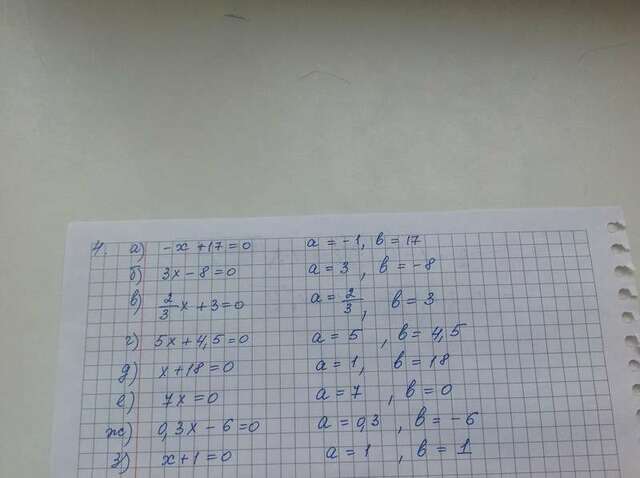 4. а) -x + 17 = 0 a = -1, b = 17
б) 3x - 8 = 0 a = 3, b = -8
в) 2/3 x + 3 = 0 a = 2/3, b = 3
г) 5x + 4,5 = 0 a = 5, b = 4,5
д) x + 18 = 0 a = 1, b = 18
е) 7x = 0 a = 7, b = 0
ж) 0,3x - 6 = 0 a = 0,3, b = -6
з) x + 1 = 0 a = 1, b = 1